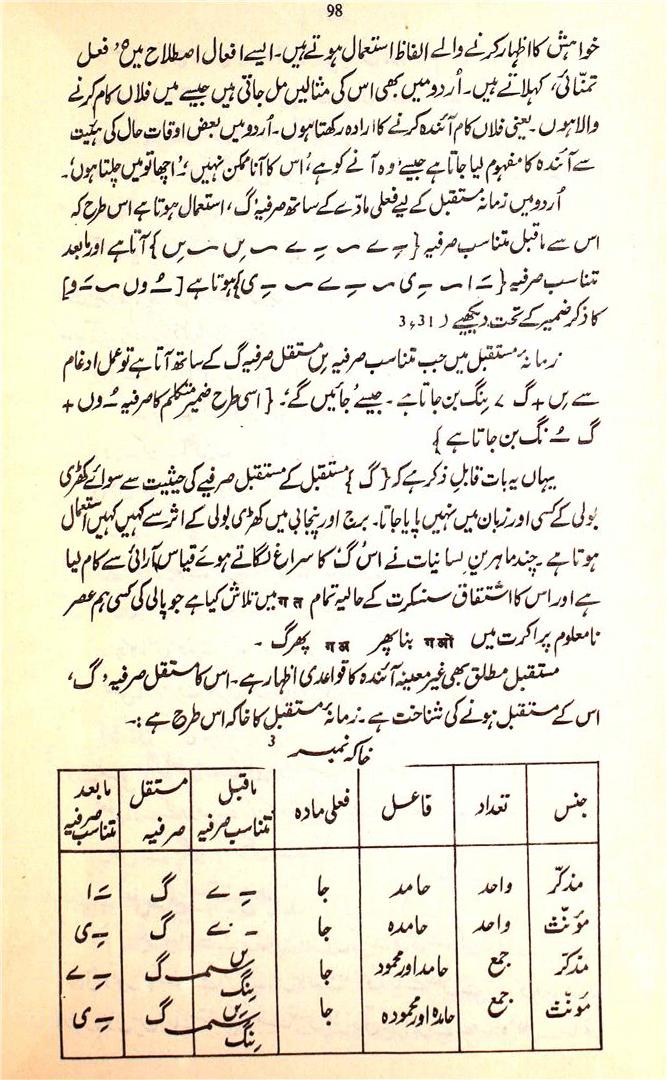 98
خواہش کا اظہار کرنے والے الفاظ استعمال ہوتے ہیں۔ ایسے افعال اصطلاح میں 'فعل
تمنّائی' کہلاتے ہیں۔ اُردو میں بھی اس کی مثالیں مل جاتی ہیں جیسے میں فلاں کام کرنے
والا ہوں۔ یعنی فلاں کام آئندہ کرنے کا ارادہ رکھتا ہوں۔ اُردو میں بعض اوقات حال کی ہیئت
سے آئندہ کا مفہوم لیا جاتا ہے جیسے 'وہ آنے کو ہے، اُس کا آنا ممکن نہیں'، 'اچھا تو میں چلتا ہوں'۔
اُردو میں زمانہ مستقبل کے لیے فعلی مادّے کے ساتھ صرفیہ 'گ' استعمال ہوتا ہے اس طرح کہ
اس سے ماقبل متناسب صرفیہ {ـِ ے ـِ ے ں ں} آتا ہے اور مابعد
تناسب صرفیہ {ـَ ا ـِ ی ـِ ے ـِ ی} ہوتا ہے [ـُ وں ـَ و]
کا ذکر ضمیر کے تحت دیکھیے (3،31
زمانہ مستقبل میں جب تناسب صرفیہ ںِ مستقل صرفیہ گ کے ساتھ آتا ہے تو عمل ادغام
سے ںِ + گ > ںِگ بن جاتا ہے۔ جیسے 'جائیں گے'۔ {اسی طرح ضمیر متکلم کا صرفیہ ـُ وں +
گ ـُ نگ بن جاتا ہے}
یہاں یہ بات قابلِ ذکر ہے کہ {گ} مستقبل کے مستقبل صرفیے کی حیثیت سے سوائے کھڑی
بولی کے کسی اور زبان میں نہیں پایا جاتا۔ برج اور پنجابی میں کھڑی بولی کے اثر سے کہیں کہیں استعمال
ہوتا ہے۔ چند ماہرینِ لسانیات نے اس 'گ' کا سراغ لگاتے ہوئے قیاس آرائی سے کام لیا
ہے اور اس کا اشتقاق سنسکرت کے حالیہ تمام गत میں تلاش کیا ہے جو پالی کی کسی ہم عصر
نامعلوم پراکرت میں गओ بنا پھر गअ پھر گ ۔
مستقبل مطلق بھی غیر معینہ آئندہ کا قواعدی اظہار ہے۔ اس کا مستقل صرفیہ 'گ'،
اس کے مستقبل ہونے کی شناخت ہے۔ زمانہ مستقبل کا خاکہ اس طرح ہے :۔
خاکہ نمبر 3
جنس تعداد فاعل فعلی مادہ ماقبل تناسب صرفیہ مستقل صرفیہ مابعد تناسب صرفیہ
مذکّر واحد حامد جا ـِ ے گ ـَ ا
مؤنّث واحد حامدہ جا ـِ ے گ ـِ ی
مذکّر جمع حامد اور محمود جا ںِ ںِگ گ ـِ ے
مؤنّث جمع حامدہ اور محمودہ جا ںِ ںِگ گ ـِ ی